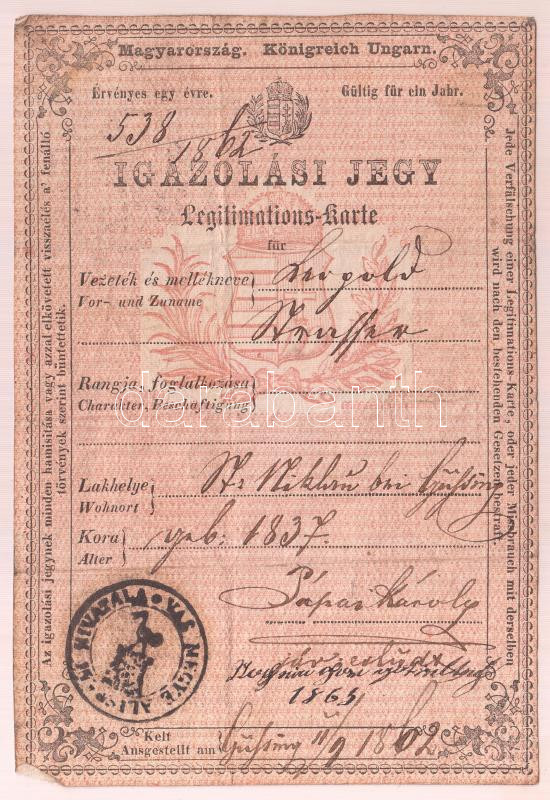 Magyarország. Königreich Ungarn.
Érvényes egy évre. Gültig für ein Jahr.
538
1862
IGAZOLÁSI JEGY
Legitimations-Karte
für
Vezeték és mellékneve Leopold
Vor- und Zuname Strasser
Rangja, foglalkozása
Charakter, Beschäftigung
darabanth
Lakhelye St. Niklau bei Güssing
Wohnort
Kora geb: 1837.
Alter
Pápai Károly
1863
VAS MEGYE ALISP HIVATALA
Kelt
Ausgestellt am Güssing 11/9 1862
Az igazolási jegynek minden hamisitása vagy azzal elkövetett visszaélés a' fenálló
törvények szerint büntettetik.
Jede Verfälschung einer Legitimations Karte, oder jeder Missbrauch mit derselben
wird nach den bestehenden Gesetzen bestraft.